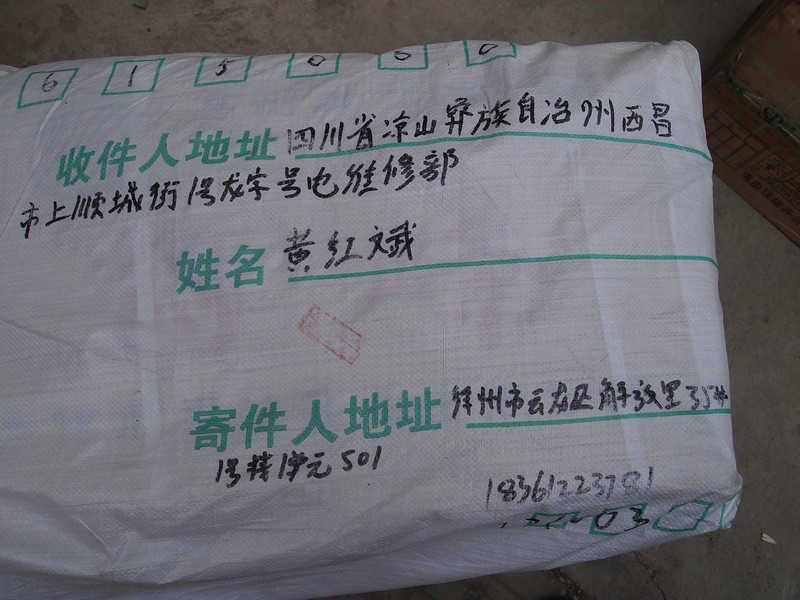 615000
收件人地址 四川省凉山彝族自治州西昌
市上顺城街1号龙字号电维修部
姓名 黄红斌
寄件人地址 徐州市云龙区解放里35#
1号楼1单元501
18361223781